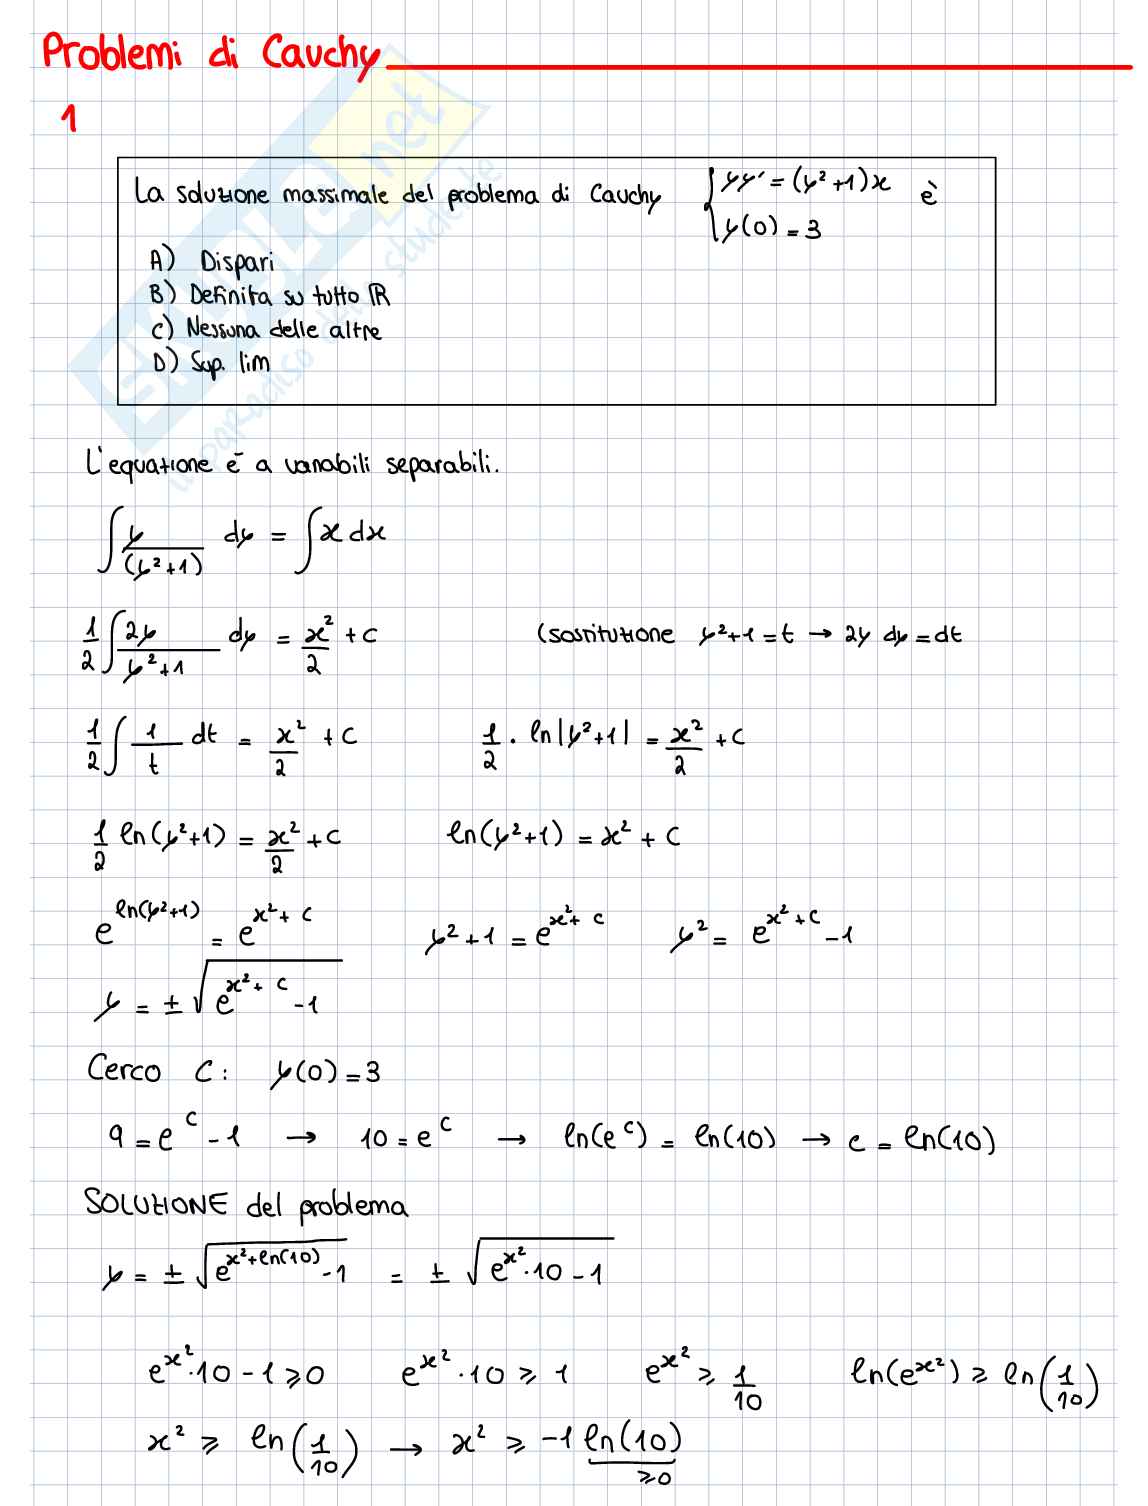 Problemi di Cauchy
1
La soluzione massimale del problema di Cauchy { yy' = (y²+1)x è
y(0) = 3
A) Dispari
B) Definita su tutto ℝ
C) Nessuna delle altre
D) Sup. lim
L'equazione è a variabili separabili.
∫ y/(y²+1) dy = ∫ x dx
1/2 ∫ 2y/(y²+1) dy = x²/2 + c (sostituzione y²+1 = t → 2y dy = dt
1/2 ∫ 1/t dt = x²/2 + c 1/2 · ln|y²+1| = x²/2 + c
1/2 ln(y²+1) = x²/2 + c ln(y²+1) = x² + c
e^(ln(y²+1)) = e^(x²+c) y²+1 = e^(x²+c) y² = e^(x²+c) -1
y = ± √(e^(x²+c) -1)
Cerco C: y(0) = 3
9 = e^c - 1 → 10 = e^c → ln(e^c) = ln(10) → c = ln(10)
SOLUZIONE del problema
y = ± √(e^(x²+ln(10)) -1) = ± √(e^(x²) · 10 - 1)
e^(x²) · 10 - 1 ≥ 0 e^(x²) · 10 ≥ 1 e^(x²) ≥ 1/10 ln(e^(x²)) ≥ ln(1/10)
x² ≥ ln(1/10) → x² ≥ -1 ln(10)
≥0